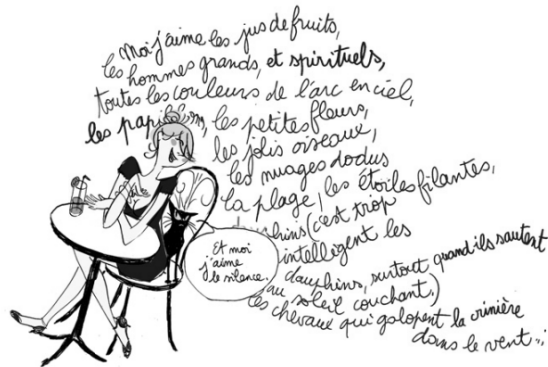 Moi j'aime les jus de fruits,
les hommes grands, et spirituels,
toutes les couleurs de l'arc en ciel,
les les petites fleurs,
les jolis oiseaux,
les nuages dodus
la plage, les étoiles filantes,
(c'est trop
intelligent les
dauphins, surtout quand ils sautent
au soleil couchant.)
les chevaux qui galopent la crinière
dans le vent...
Et moi
j'aime
le silence.